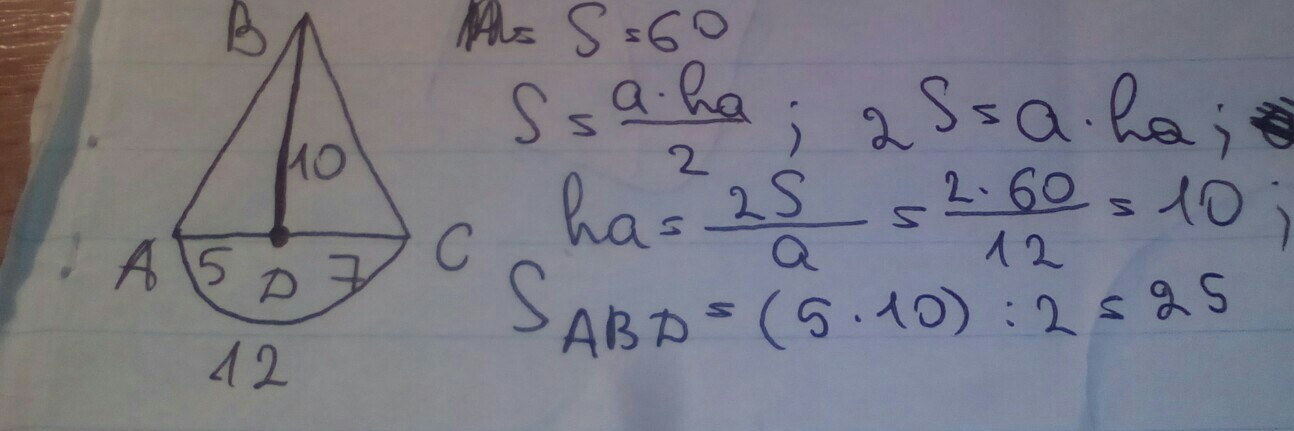 B
10
A 5 D 7 C
12
S = 60
S = a · ha / 2 ; 2S = a · ha ;
ha = 2S / a = 2 · 60 / 12 = 10 ;
S ABD = (5 · 10) : 2 = 25